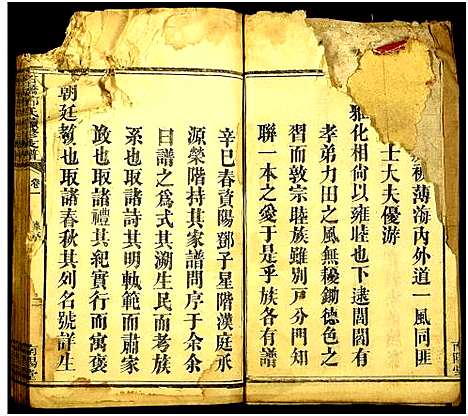 薄海內外道一風同匪
士大夫優游
雅化相尙以雍睦也下逮閭閻有
孝弟力田之風無耰鋤德色之
習而敦宗睦族雖別戸分門知
聯一本之愛于是乎族各有譜
辛巳春資陽鄧子星階漢庭承
源榮階持其家譜問序于余余
曰譜之爲式其溯生民而考族
系也取諸詩其明軌範而肅家
政也取諸禮其紀實行而寓褒
朝廷教也取諸春秋其列名號詳生
氏續修支譜
卷一
南陽堂